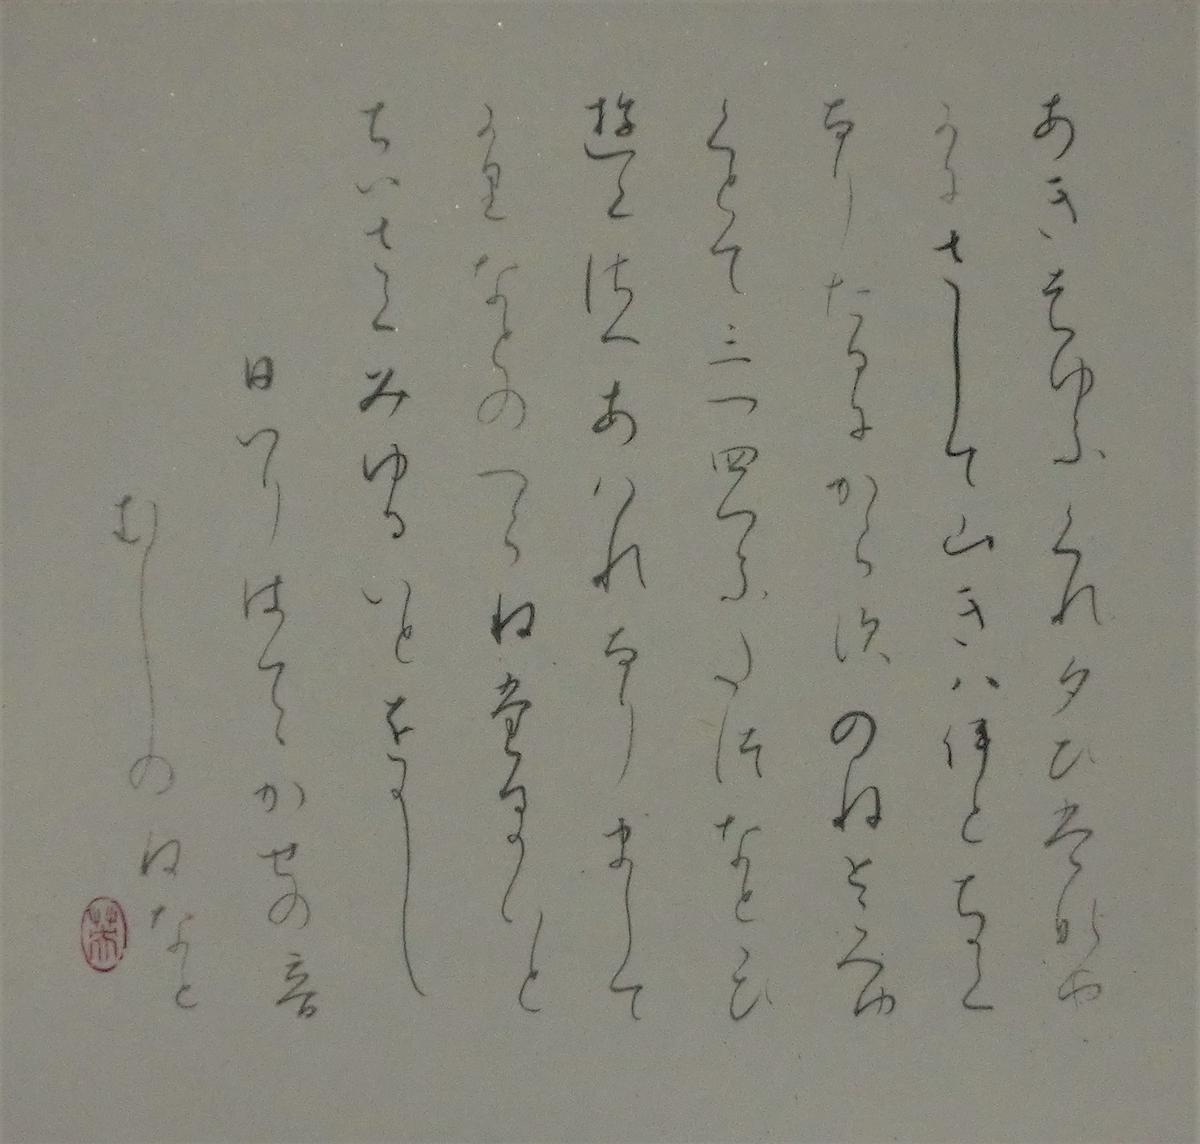 あきはゆふくれ夕ひ者那や
可尓さして山きハ伊とちかく
奈りたる尓から須のねところへゆ
くとて三つ四つふたつなとと飛
遊く佐へあハれ奈りまして
可里なとのつらね堂る可いと
ちひさくみゆるいとをかし
日いりはてゝかせの音
むしのねなと